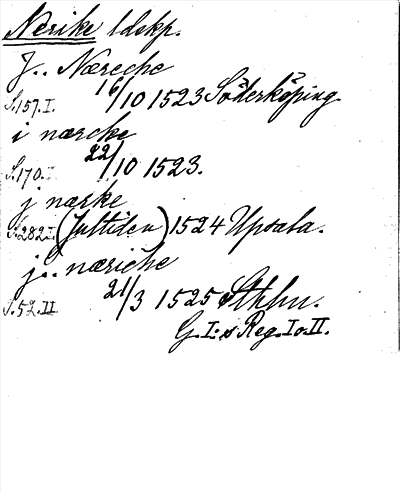 Nerike ldskp.
J.. Næreche
S.157.I. 16/10 1523 Söderköping.
i nærcke
S.170.I 22/10 1523.
j nærke
S.282I. (Jultiden) 1524 Upsala.
j.. næriche
S.52.II 21/3 1525 Sthlm.
G.I:s Reg. I o. II.